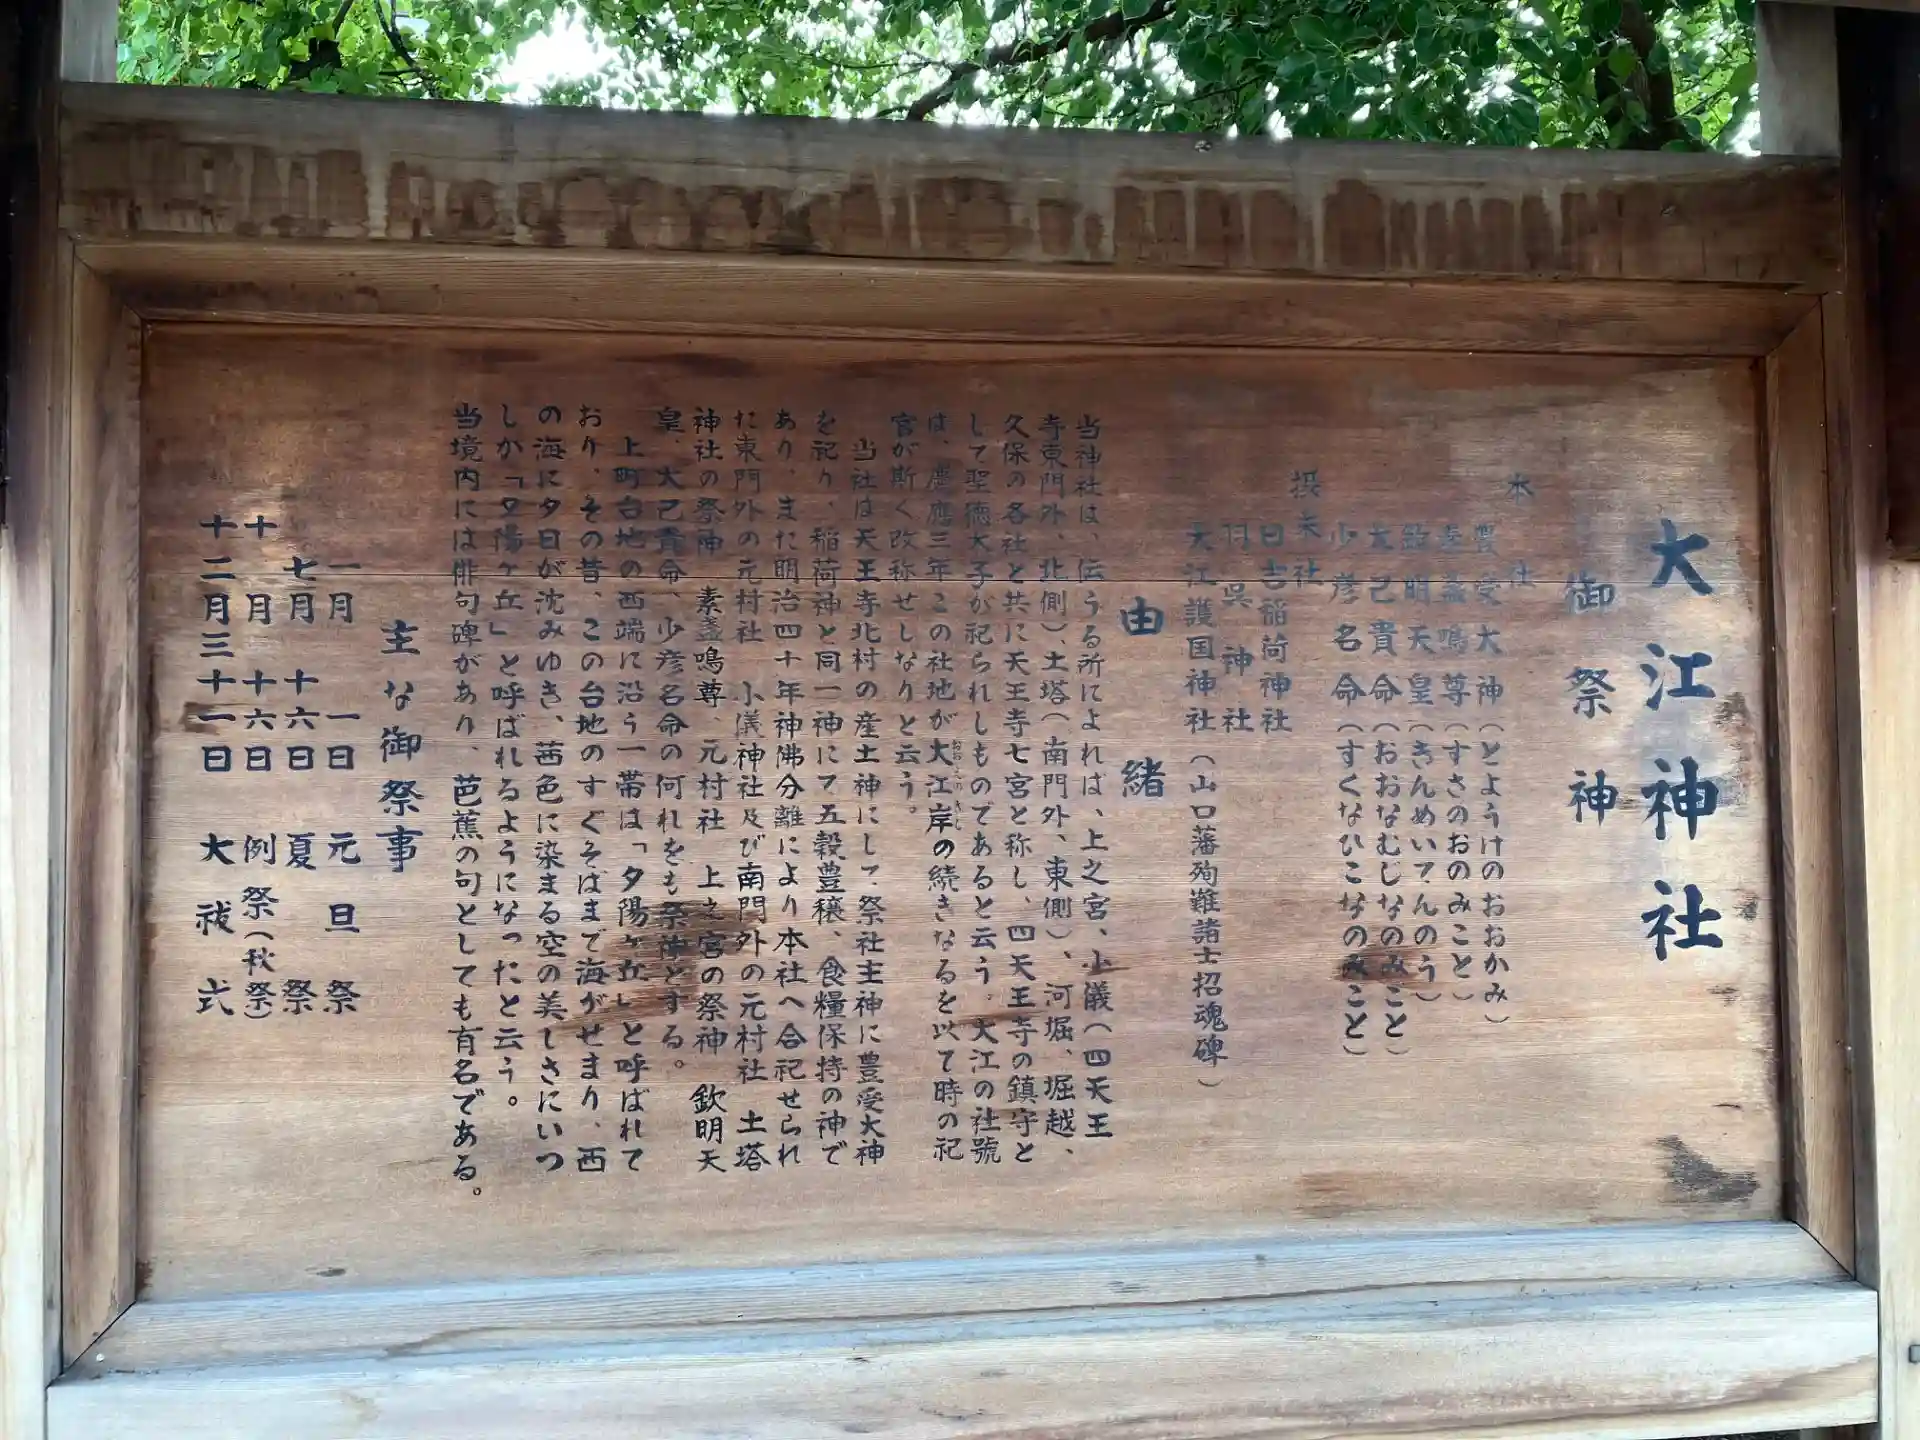 大江神社
御祭神
本社
豊受大神(とようけのおおかみ)
素盞鳴尊(すさのおのみこと)
欽明天皇(きんめいてんのう)
大己貴命(おおなむじなのみこと)
少彦名命(すくなひこなのみこと)
摂末社
日吉稲荷神社
羽呉神社
大江護国神社(山口藩殉難諸士招魂碑)
由緒
当神社は、伝うる所によれば、上之宮、小儀(四天王
寺東門外、北側)、土塔(南門外、東側)、河堀、堀越、
久保の各社と共に天王寺七宮と称し、四天王寺の鎮守と
して聖徳太子が祀られしものであると云う。大江の社號
は、慶應三年この社地が大江岸の続きなるを以て時の祀
おおえのきし
官が斯く改称せしなりと云う。
当社は天王寺北村の産土神にして、祭社主神に豊受大神
を祀り、稲荷神と同一神にて五穀豊穣、食糧保持の神で
あり、また明治四十年神佛分離により本社へ合祀せられ
た東門外の元村社 小儀神社及び南門外の元村社 土塔
神社の祭神 素盞鳴尊、元村社 上之宮の祭神 欽明天
皇、大己貴命、少彦名命の何れをも祭神とする。
上町台地の西端に沿う一帯は「夕陽ヶ丘」と呼ばれて
おり、その昔、この台地のすぐそばまで海がせまり、西
の海に夕日が沈みゆき、茜色に染まる空の美しさにいつ
しか「夕陽ヶ丘」と呼ばれるようになったと云う。
当境内には俳句碑があり、芭蕉の句としても有名である。
主な御祭事
一月 一日 元旦祭
七月 十六日 夏祭
十月 十六日 例祭(秋祭)
十二月三十一日 大祓式